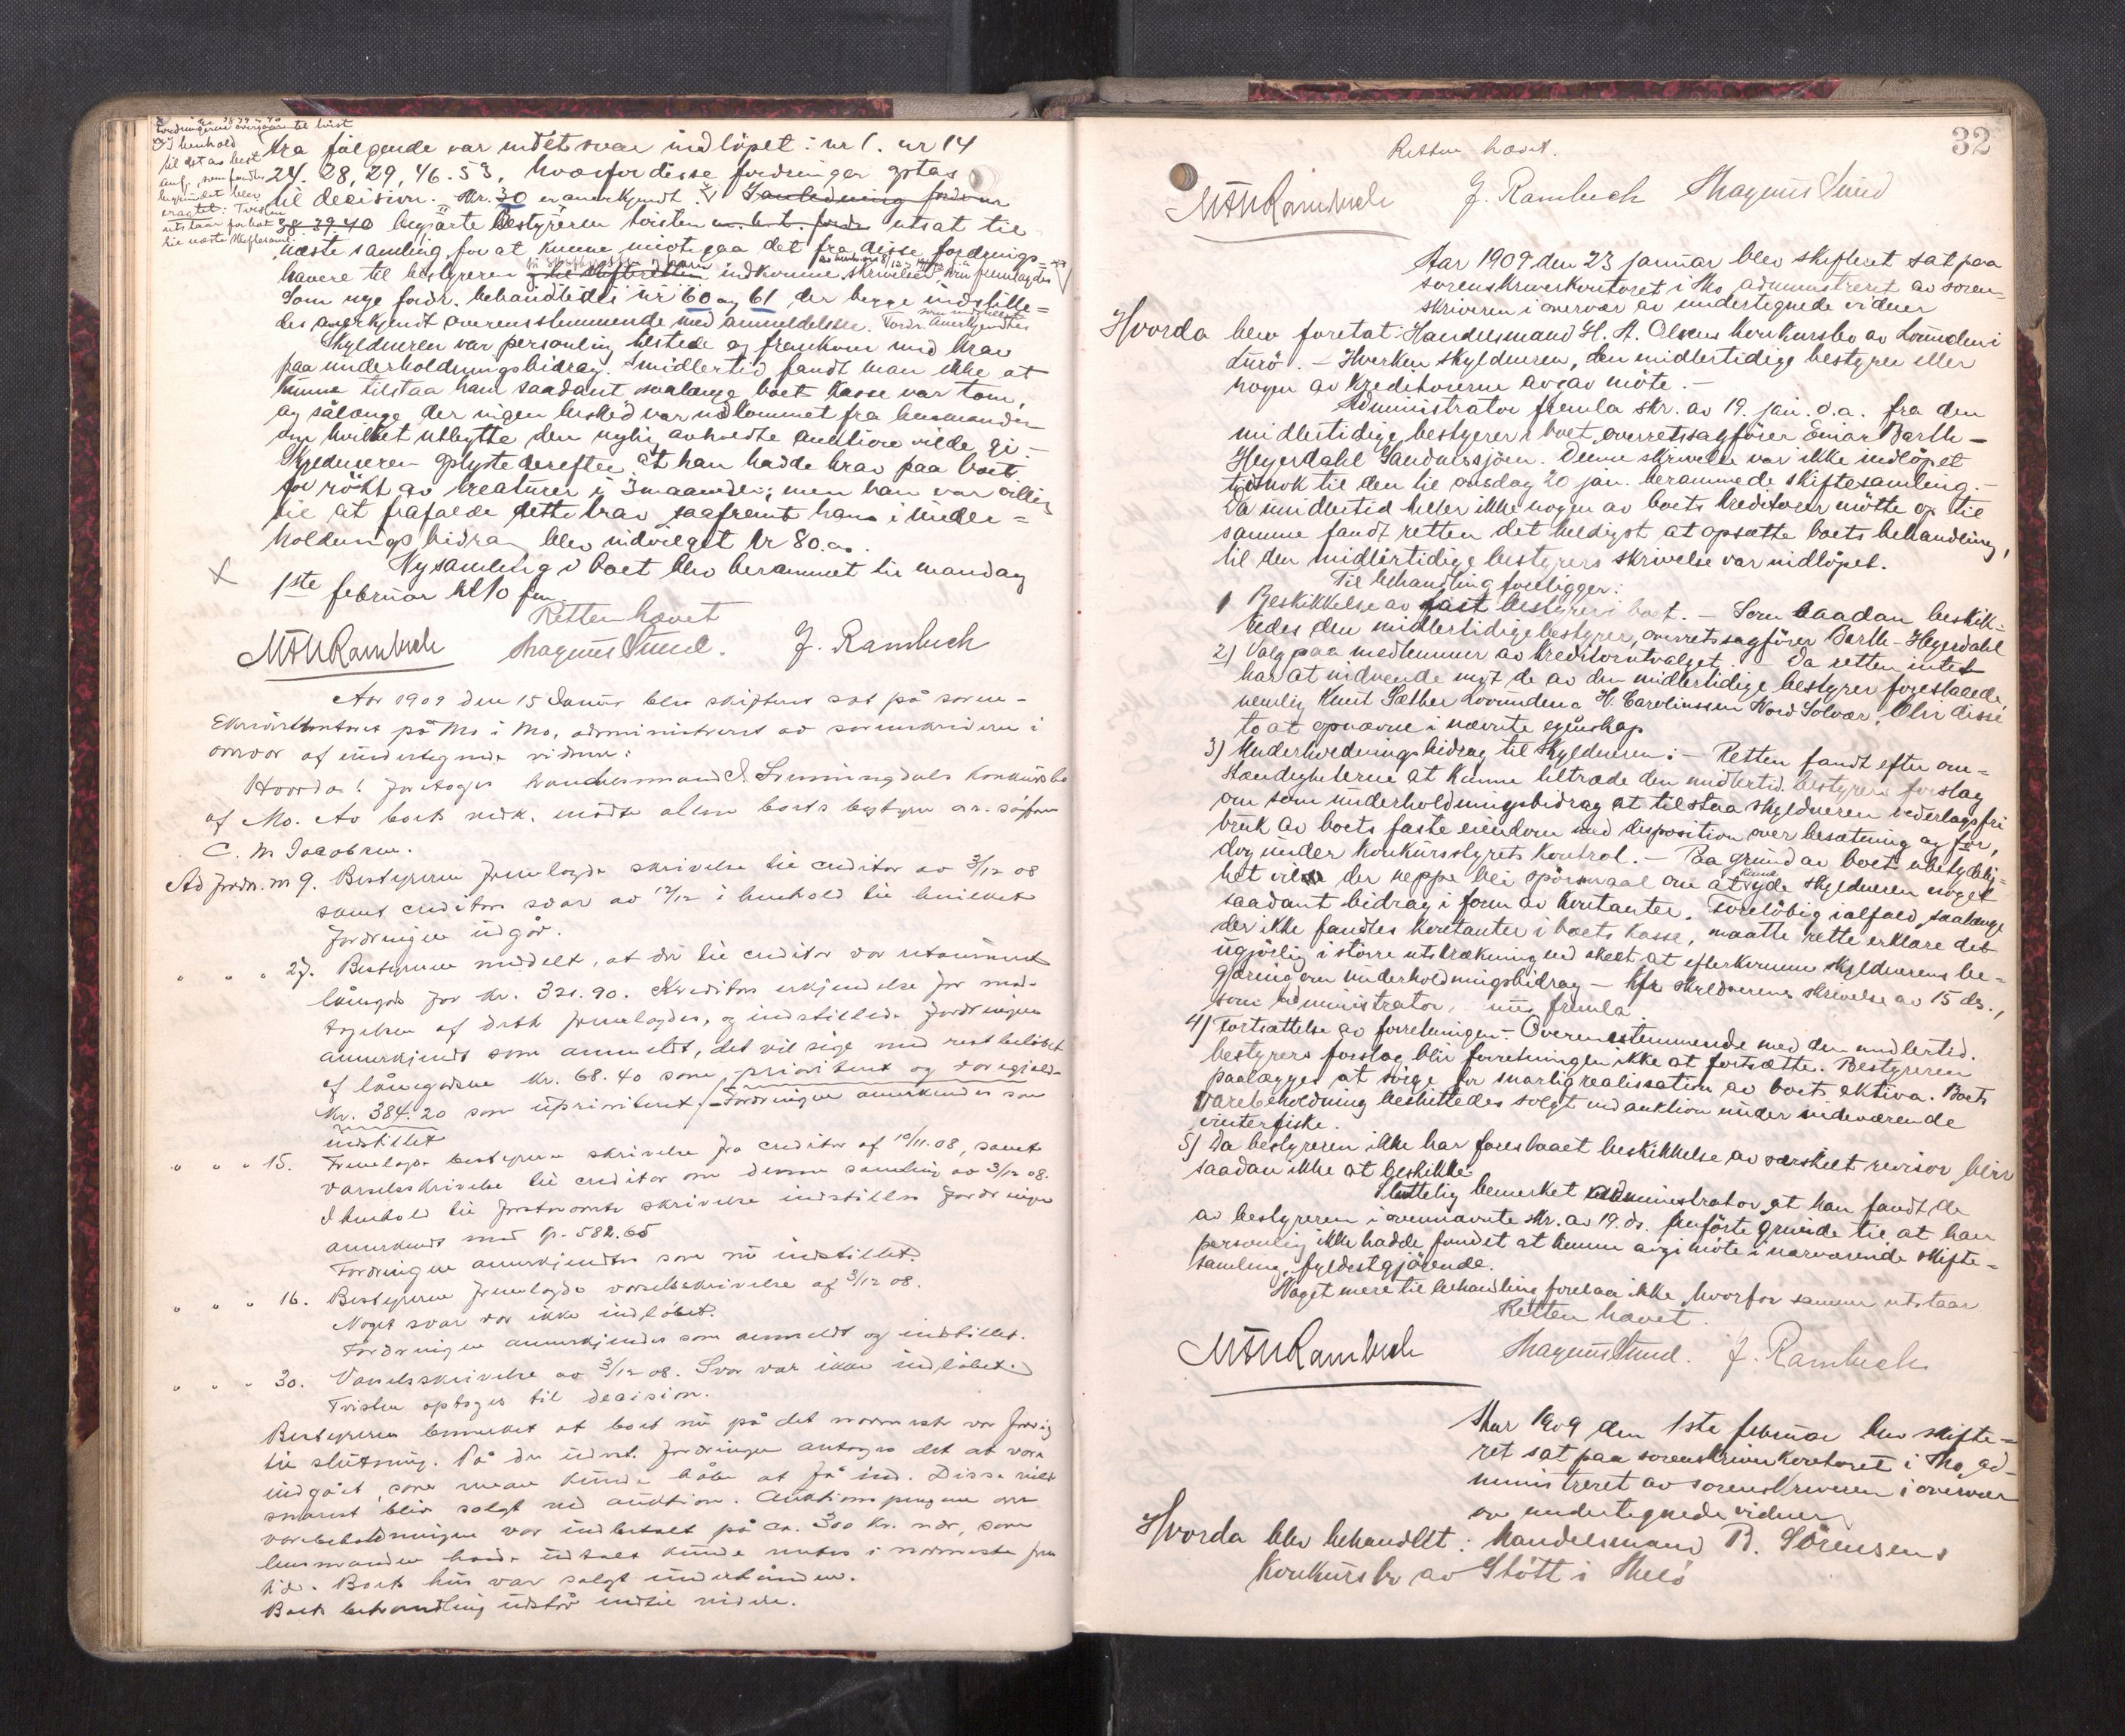 fra følgende var intet svar indløpet: nr 1. nr 14
24. 28, 29, 46. 53, hvorfor disse fordringer optas
til decision. Nr. 30 er anerkjendt.
38. 39. 40 begjærte bestyreren tvisten utsat til
næste samling for at kunne imøtegaa det fra disse fordrings=
havere til bestyreren indkomne skrivelser, som fremlagdes
Som nye fordr. behandledes nr 60 og 61 der begge indstille=
des anerkjendt overensstemmende med anmeldelsen. Fordr. anerkjendtes
som indstillet
Skyldneren var personlig tilstede og fremkom med krav
paa underholdningsbidrag. Imidlertid fandt man ikke at
kunne tilstaa ham saadant saalænge boets kasse var tom,
og sålænge der ingen besked var indkommet fra lensmanden
om hvilket utbytte den nylig avholdte auktion vilde gi. –
Skyldneren oplyste derefter at han hadde krav paa boet
for røkt av kreaturer i 3 maaneder; men han var villig
til at frafalde dette krav saafremt ham i under=
holdningsbidrag blev indvilget kr 80.00.
Ny samling i boet blev berammet til mandag
1ste februar kl 10 fm.
Retten hævet
MAURambuch Magnus Sund. J. Rambech
Aar 1909 den 15 Januar blev skifteret sat på soren-
skriverkontoret på Mo i Mo, administreret av sorenskriveren i
overvær af undertegnede vidner:
Hvorda: foretoges handelsmand I. Svenningdals konkursbo
af Mo. Av boets vedk. mødte alene boets bestyrer or. sagfører
C. M. Jacobsen.
Ad fordr. nr 9. Bestyreren fremlagde skrivelse til creditor av 3/12 08
samt creditors svar av 12/12 i henhold til hvilket
fordringen udgår.
" " " 27. Bestyreren meddelt, at der til creditor var utleveret
lånegods for kr. 321.90. Kreditors erkjendelse for mod-
tagelsen af dette fremlagdes, og indstilledes fordringen
anerkjendt som anmeldt, det vil sige med restbeløbet
af lånegodset kr. 68.40 som prioritert og
kr. 384.20 som uprioriteret. – Fordringen anerkendes som
indstillet
" " " 15. Fremlagde bestyreren skrivelse fra creditor af 10/11.08, samt
varselsskrivelse til creditor om denne samling av 3/12 08.
I henhold til førstnævnte skrivelse indstilles fordringen
anerkendt med kr. 582.65
Fordringen anerkjendtes som nu indstillet.
" " " 16. Bestyreren fremlagde varselsskrivelse af 3/12 08.
Noget svar var ikke indløbet.
Fordringen anerkjendes som anmeldt og indstillet.
" " " 30. Varselsskrivelse av 3/12 08. Svar var ikke indløbet.
Tvisten optoges til decision.
Bestyreren bemerket at boet nu på det nærmeste var færdig
til slutning. På de udest. fordringer antoges det at være
indgået, som man kunde håbe at få ind. Disse vilde
snarest bliv solgt ved auktion. Auktionspengene over
varebeholdningen var indbetalt på ca. 300 kr. nær, som
lensmanden havde udtalt kunde ventes i nærmeste frem
tid. Boets hus var solgt underhånden.
Boets behandling udstår indtil videre.
32
Retten hævet.
MAURambuch J. Rambech Magnus Sund
Aar 1909 den 23 januar blev skifteret sat paa
sorenskriverkontoret i Mo, administreret av soren-
skriveren i overvær av undertegnede vidner
Hvorda blev foretat: Handelsmand H. A. Olsens konkursbo av Lovunden i
Lurö. – Hverken skyldneren, den midlertidige bestyrer eller
nogen av kreditorerne avgav møte. –
Administrator fremla skr. av 19. jan. d.a. fra den
midlertidige bestyrer i boet, overretssagfører Einar Barth-
Heyerdahl Sandnessjøen. Denne skrivelse var ikke indløpet
tidsnok til den til onsdag 20 jan. berammede skiftesamling. –
Da imidlertid heller ikke nogen av boets kreditorer møtte op til
samme fandt retten det heldigst at opsætte boets behandling,
til den midlertidige bestyrers skrivelse var indløpet.
Til behandling foreligger:
1 Beskikkelse av fast bestyrer i boet. – Som saadan beskik=
kedes den midlertidige bestyrer, overretssagfører Barth-Heyerdahl
2) Valg paa medlemmer av kreditorutvalget. – Da retten intet
har at indvende mot de av den midlertidige bestyrer foreslaaede,
nemlig Knut Sæther Lovunden og H. Carolinssen Nord Solvær, blir disse
to at opnævne i nævnte egenskap
3) Underholdningsbidrag til skyldneren: – Retten fandt efter om=
stændighetene at kunne tiltræde den midlertid. bestyrers forslag
om som underholdningsbidrag at tilstaa skyldneren vederlagsfri
bruk av boets faste eiendom med disposition over besætning og for,
dog under konkursstyrets kontrol. – Paa grund av boets ubetydelig=
het vil der neppe bli spørsmaal om at kunne yde skyldneren noget
saadant bidrag i form av kontanter. Foreløbig ialfald, saalænge
der ikke fandtes kontanter i boets kasse, maatte rette erklære det
ugjørlig i større utstrækning end skeet at efterkomme skyldnerens be=
gjæring om underholdningsbidrag – kfr skyldnerens skrivelse av 15 ds.,
som administrator nu fremla
4) Fortsættelse av forretningen. – Overensstemmende med den midlertid.
bestyrers forslag blir forretningen ikke at fortsætte. Bestyreren
paalægges at sørge for snarlig realisation av boets aktiva. Boets
varebeholdning besluttedes solgt ved auktion under indeværende
vinterfiske.
5) Da bestyreren ikke har foreslaaet beskikkelse av særskilt revisor, blir
saadan ikke at beskikke.
Sluttelig bemerket administrator at han fandt de
av bestyreren i ovennævnte skr. av 19. ds. anførte grunde til at han
personlig ikke hadde fundet at kunne avgi møte i nærværende skifte=
samling, fyldestgjørende.
Noget mere til behandling forelaa ikke, hvorfor samme utstaar
Retten hævet.
MAURambuch Magnus Sund. J. Rambech
Aar 1909 den 1ste februar blev skifte=
ret sat paa sorenskriverkontoret i Mo, ad-
ministreret av sorenskriveren i overvær
av undertegnede vidner
Hvorda blev behandlet: Handelsmand B. Sörensens
Konkursbo av Støtt i Melö